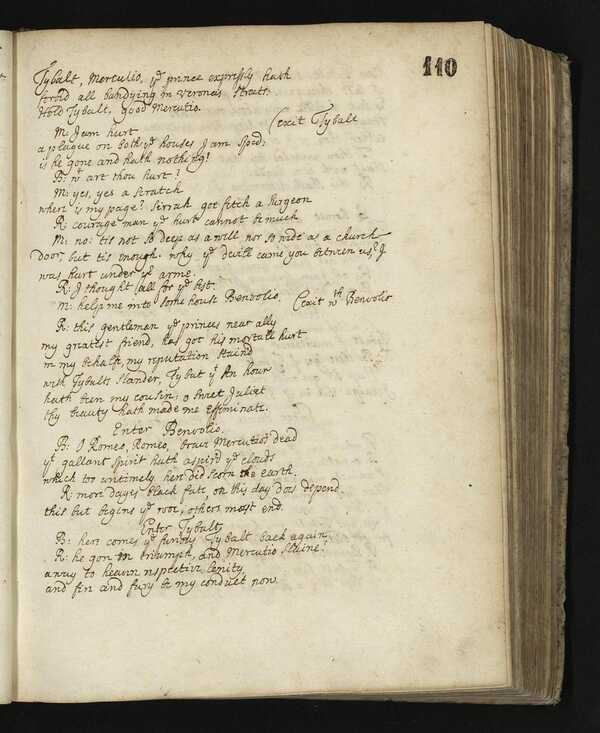 110
Tybalt, Mercutio, yᵉ prince expressly hath
forbid all bandying in veronas streets
Hold Tybalt, good Mercutio.
(exit Tybalt
M: I am hurt
a plague on both yᵉ houses I am sped;
is he gone and hath nothing?
B: wᵗ art thou hurt?
M: yes, yes a scratch
where is my page? Sirrah got fetch a surgeon
R: courage man yᵉ hurt cannot be much
M: no: tis not so deep as a well nor so wide as a church
door, but tis enough. why yᵉ devill came you between us? I
was hurt under yʳ arme.
R: I thought all for yᵉ best.
M: help me into some house Benvolio. (exit wᵗʰ Benvolio
R: this gentleman yᵉ princes near ally
my greatest friend, has got his mortall hurt
in my behalfe, my reputation staind
with Tybalts slander, Tybalt yᵗ an hour
hath been my cousin; o sweet Juliet
thy beauty hath made me effeminate.
Enter Benvolio.
B: O Romeo, Romeo, brave Mercutio's dead
yᵗ gallant spirit hath aspir'd yᵉ clouds
which too untimely here did scorn the earth.
R: mor dayes black fate, on this day does depend.
this but begins yᵉ woe, others must end.
Enter Tybalt,
B: here comes yᵉ furious Tybalt back again,
R: he gon in triumph, and Mercutio slaine!
away to heaven respective lenity
and fire and fury be my conduct now.